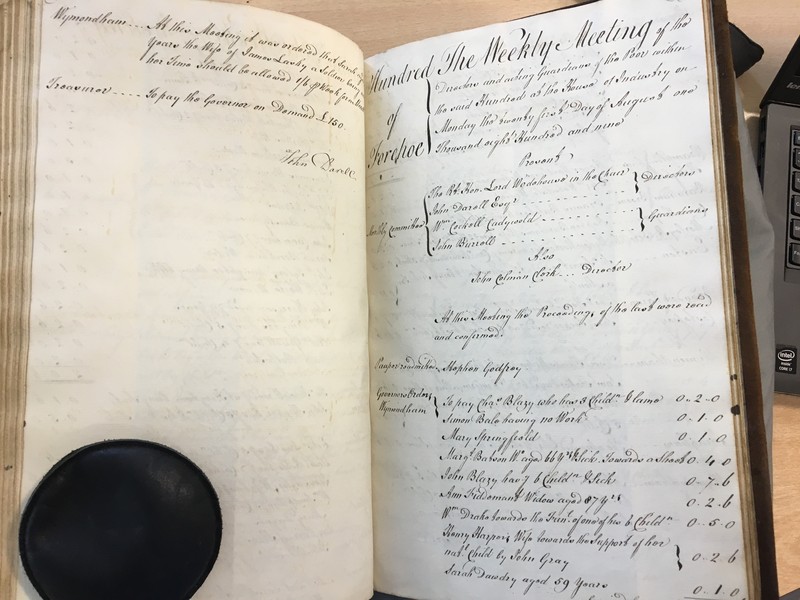 Wymondham .... At this Meeting it was ordered that Sarah
Years the Wife of James Lasby a Soldier being
her Time should be allowed 1/6 ⅌ Week from
Treasurer ........ To pay the Governor on Demand £150
John Darell
Hundred
of
Forehoe
The Weekly Meeting of the
Directors and acting Guardians of the Poor within
the said Hundred at the House of Industry on
Monday the twenty first Day of August one
Thousand eight Hundred and nine
Present
Weekly Committee
The Rt. Hon. Lord Wodehouse in the Chair
John Darell Esqr
Directors
Wm Cockell Ladywold
John Burrell
Guardians
Also
John Colman Clerk .... Director
At this Meeting the Proceedings of the last were read
and confirmed.
Pauper readmitted Stephen Godfrey
Governors Orders
Wymondham
To pay Chas. Blazy who has 3 Childn. & lame 0 - 2 - 0
Simon Bale having no Work 0 - 1 - 0
Mary Springfield 0 - 1 - 0
Margt. Batson Wo. aged 66 Yrs & Sick Towards a Sheet 0 - 4 - 0
John Blazy has 7 6 Childn. & Sick 0 - 7 - 6
Ann Widow aged 87 Yrs 0 - 2 - 6
Wm Drake towards the Funl. of one of his 6 Childn 0 - 5 - 0
Henry Harpers Wife towards the Support of her
natl. Child by John Gray 0 - 2 - 6
Sarah Dawdry aged 59 Years 0 - 1 - 0
intel
CORE i7